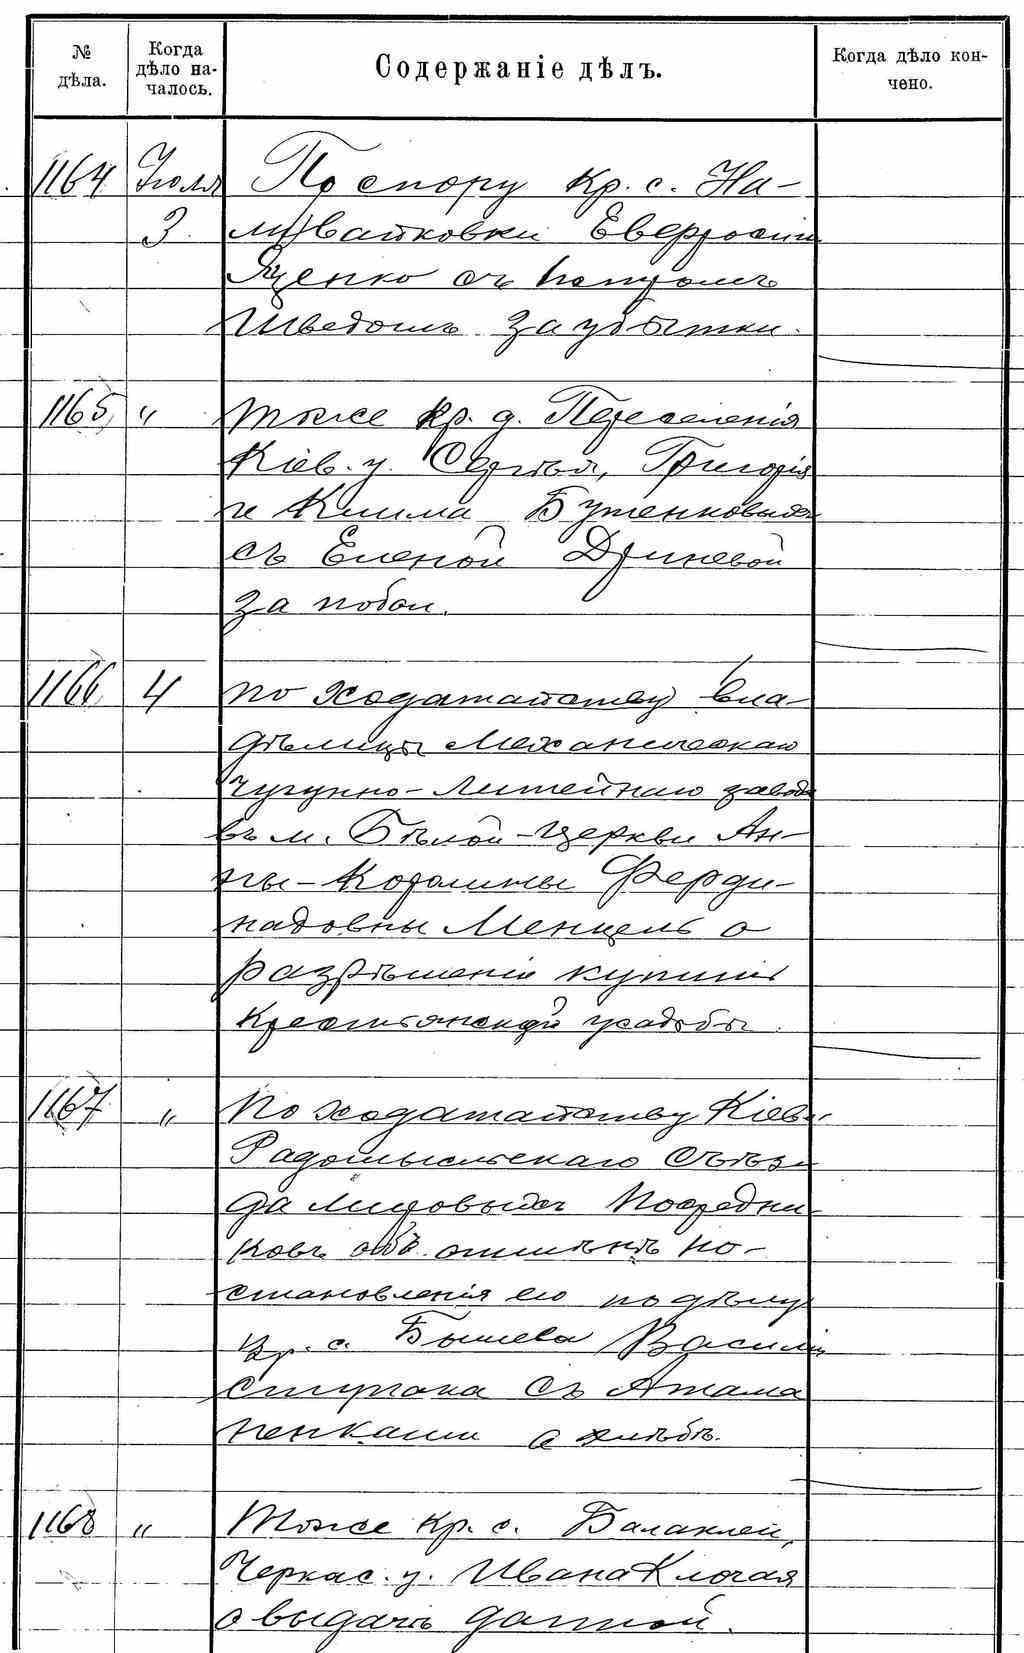 № дѣла.
Когда дѣло на-
чалось.
Содержаніе дѣлъ.
Когда дѣло кон-
чено.
1164 Іюля По спору кр. с. На-
3. ливайковки Евфросиніи
Яценко съ Петромъ
Шведомъ за убытки.
1165 " тоже кр. д. Переселенія
Кіев. у. Сергѣя, Григорія
и Клима Бутенковыхъ
съ Еленой
за побои.
1166 4 по ходатайству вла-
дѣлицы Механическаго
Чугунно-Литейнаго завода
въ м. Бѣлой-Церкви Ан-
ны-Каролины Ферди-
надовны Менцель о
разрѣшеніи купить
крестьянской усадьбы.
1167 " По ходатайству Кіево-
Радомысльскаго Съѣз-
да Мировыхъ Посредни-
ковъ объ отмѣнѣ по-
становленія его по дѣлу
кр. с. Бышева Василія
съ Атама
ненками о хлѣбѣ.
1168 " Тоже кр. с. Балаклеи,
Черкас. у. Ивана Клочая
о выдачѣ данной.